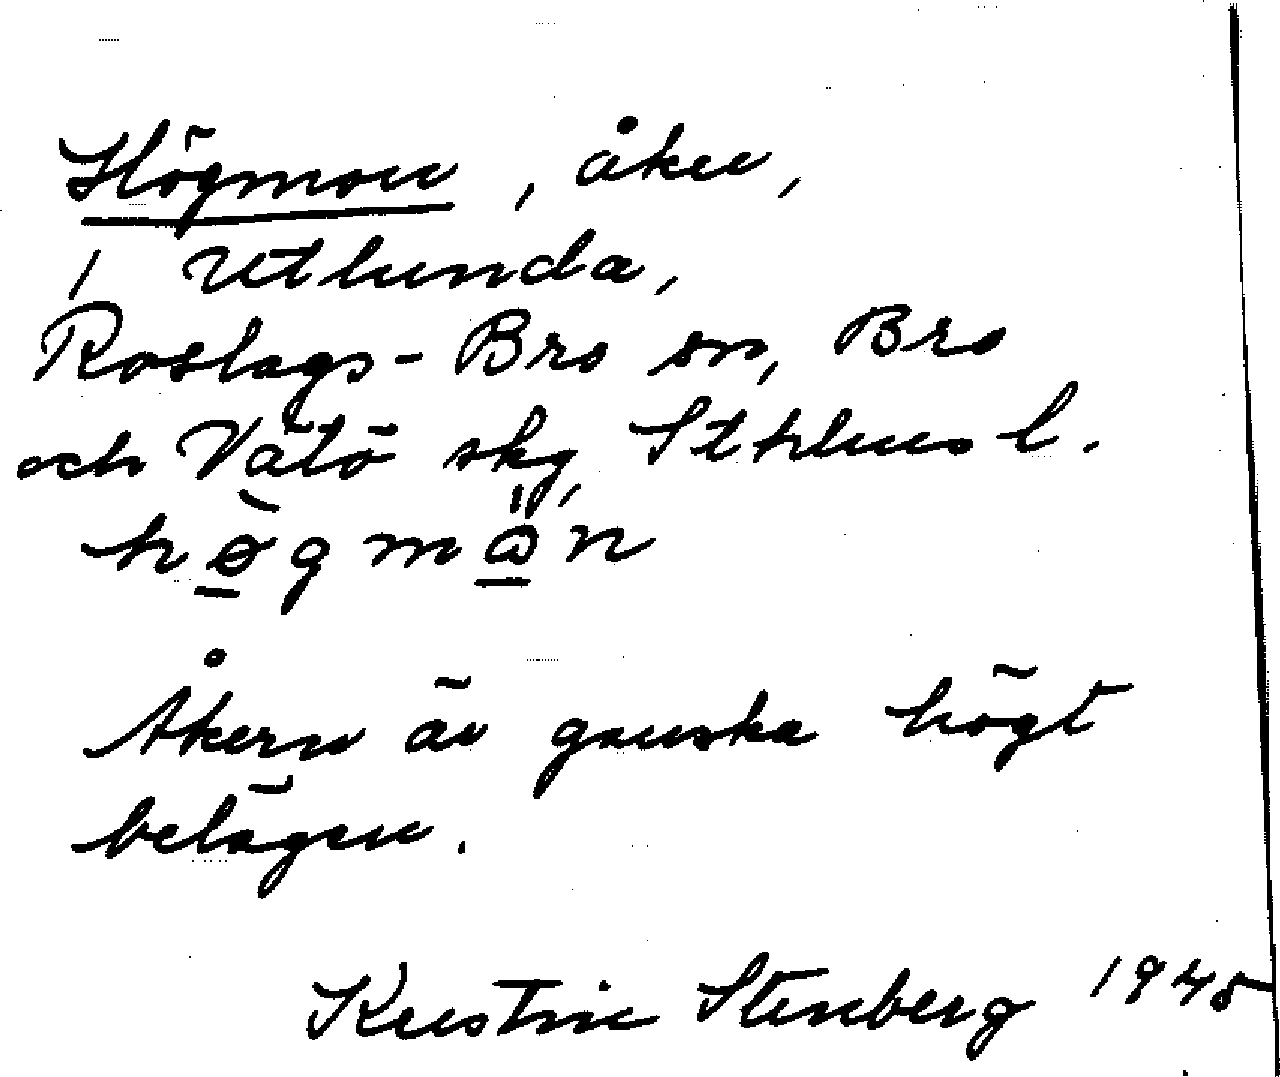 Högmon, åker,
i Utlunda,
Roslags-Bro sn, Bro
och Vätö skg, Sthlms l.
högmån
Åkern är ganska högt
belägen.
Kerstin Stenberg 1945